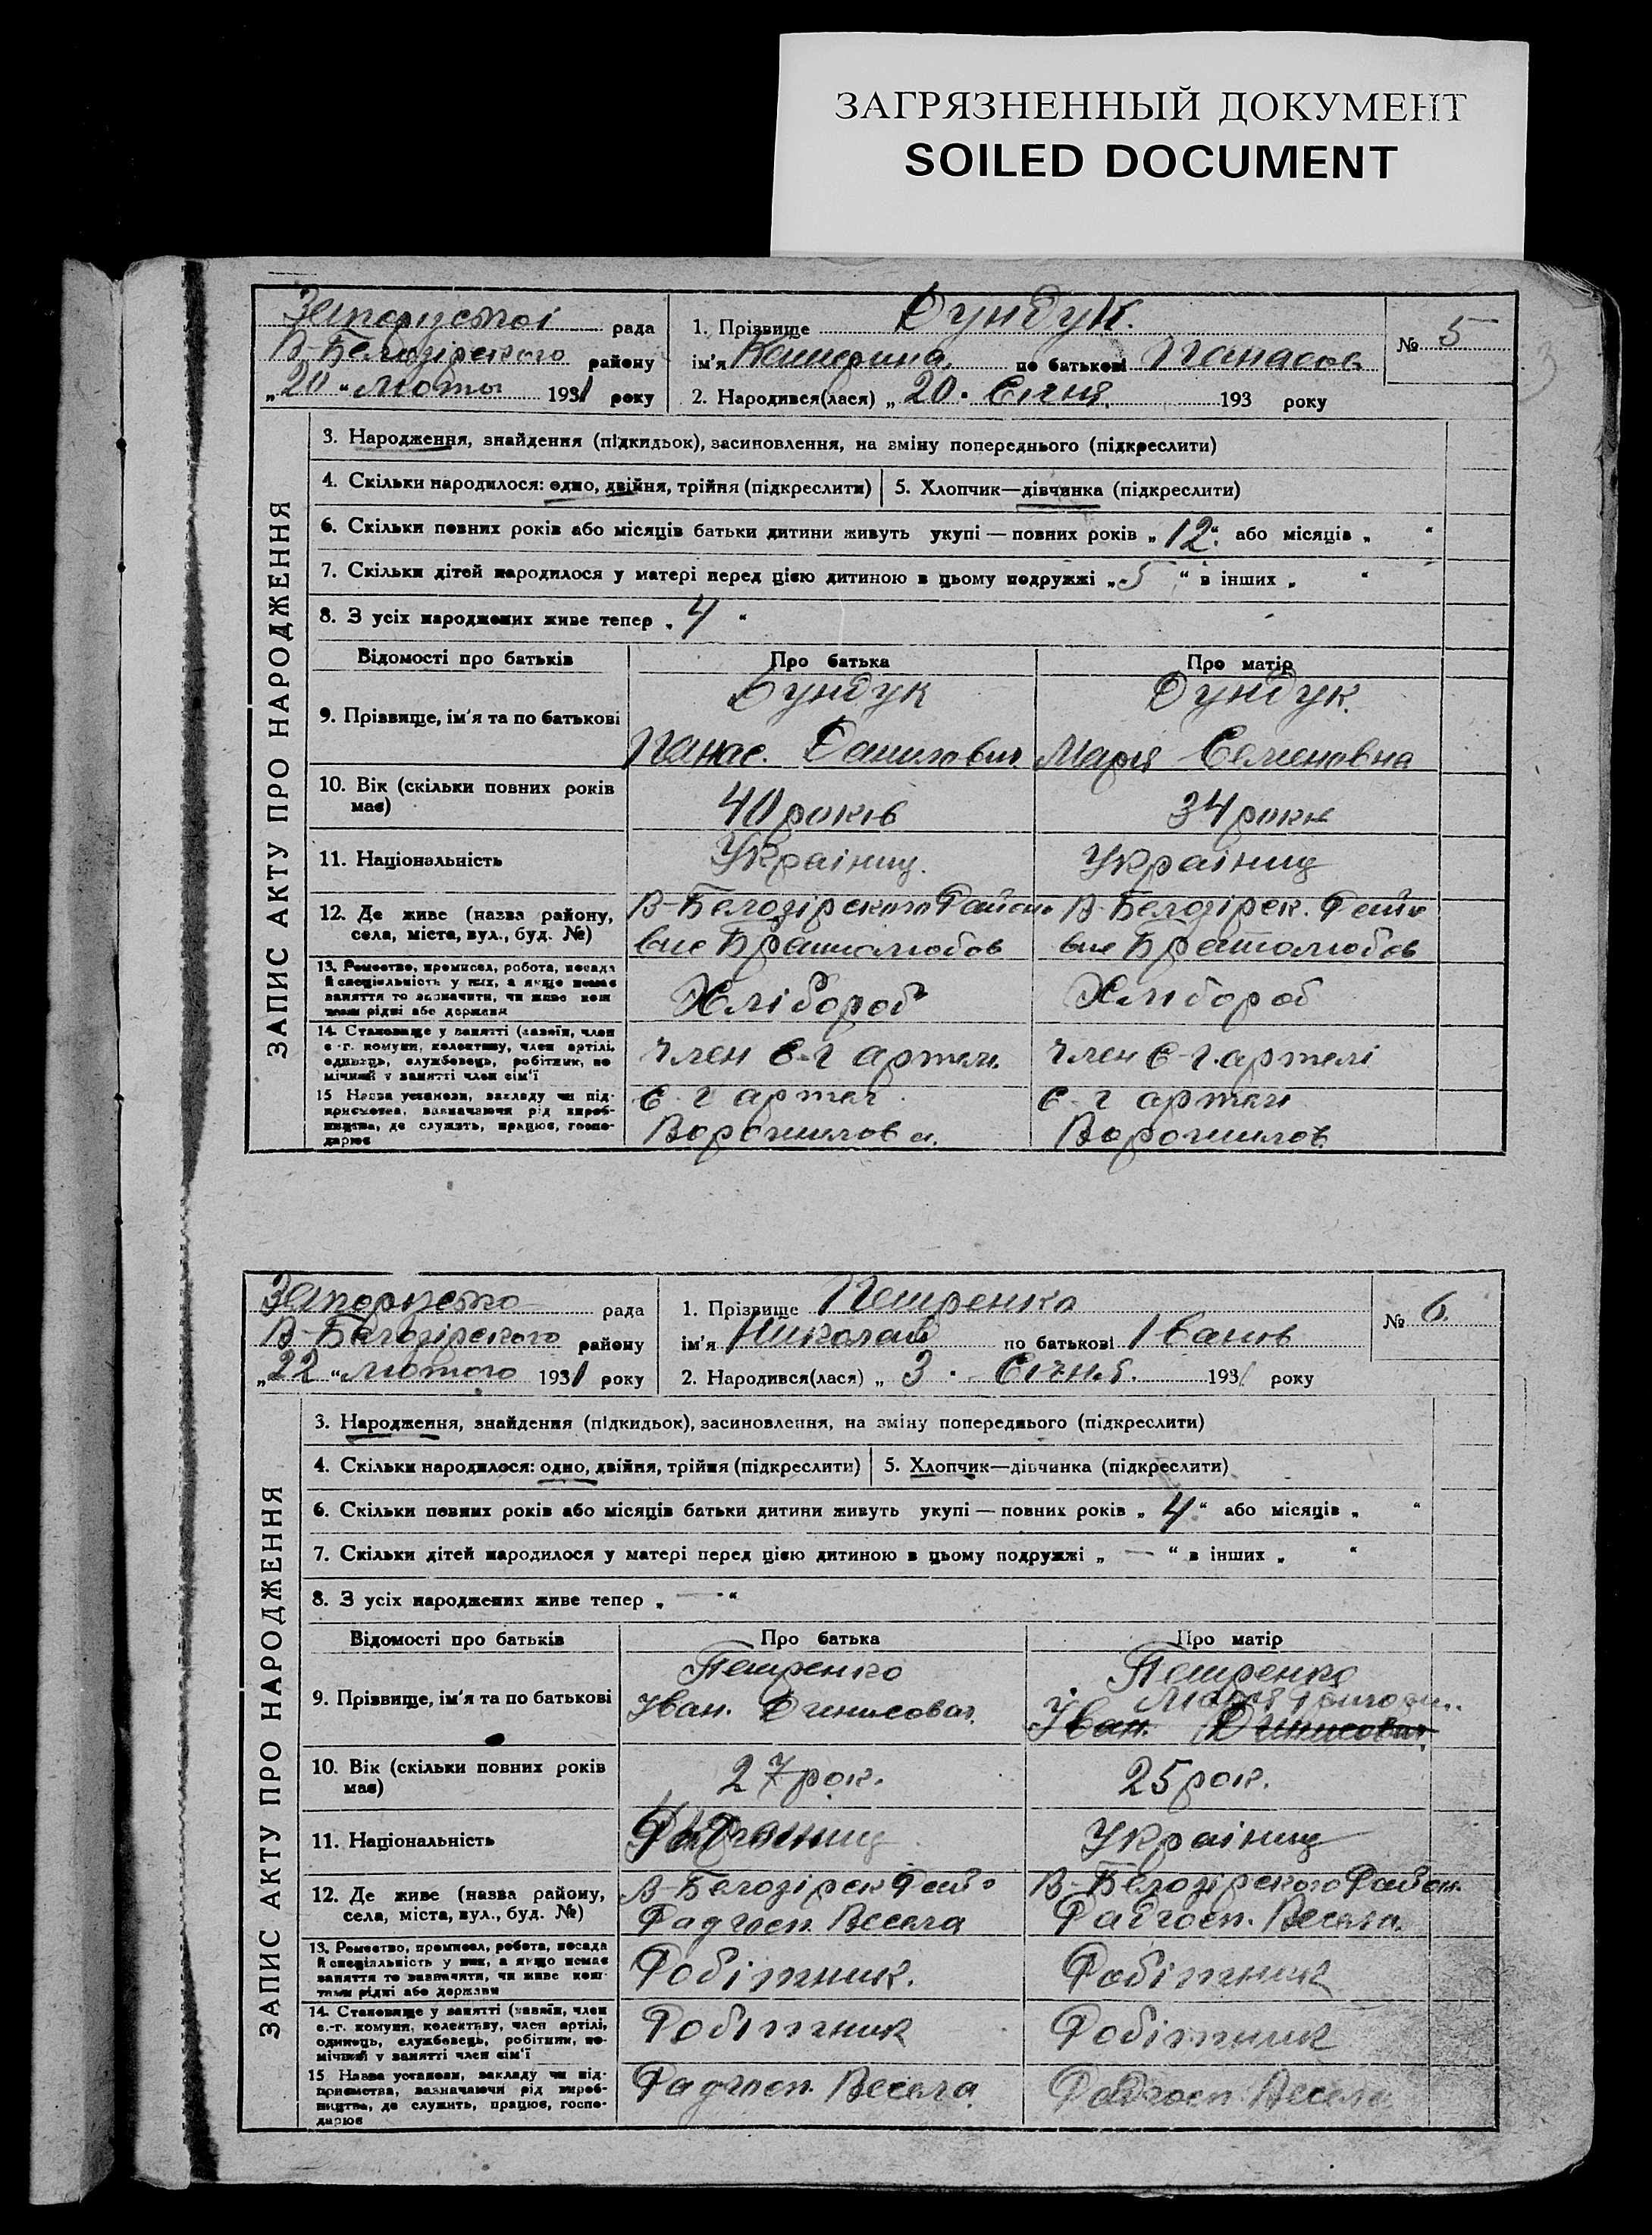 ЗАГРЯЗНЕННЫЙ ДОКУМЕНТ
SOILED DOCUMENT
рада
В-Белозірского району
„20“ Лютого 1931 року
1. Прізвище Дундук.
ім'я Катерина. по батькові Панасов
2. Народився(лася) „20. Січня. 193 року
№ 5
3
ЗАПИС АКТУ ПРО НАРОДЖЕННЯ
3. Народження, знайдення (підкидьок), засиновлення, на зміну попереднього (підкреслити)
4. Скільки народилося: одно, двійня, трійня (підкреслити)
5. Хлопчик—дівчинка (підкреслити)
6. Скільки повних років або місяців батьки дитини живуть укупі — повних років „12“ або місяців „ “
7. Скільки дітей народилося у матері перед цією дитиною в цьому подружжі „5“ в інших „ “
8. З усіх народжених живе тепер „4“
Відомості про батьків
Про батька
Про матір
9. Прізвище, ім'я та по батькові
Дундук
Панас. Данилович
Дундук.
Марія Семеновна
10. Вік (скільки повних років має)
40 років
34 роки
11. Національність
Украінец.
Украінец
12. Де живе (назва району,
села, міста, вул., буд. №)
В-Белозірского Район
вне Братолюбов
В-Белозірск. Райо
вне Братолюбов
13. Ремество, промисел, робота, посада
й спеціяльність у них, а якщо немає
заняття то зазначити, чи живе кош-
тами рідні або держави
Хлібороб
Хлібороб
14. Становище у занятті (хазяїн, член
с.-г. комуни, колективу, член артілі,
одинець, службовець, робітник, по-
мічний у занятті член сім'ї
член С-г артели.
член С-г. артелі
15 Назва установи, закладу чи під-
приємства, зазначаючи рід вироб-
ництва, де служить, працює, госпо-
дарює
С-г артел.
Ворошилова.
С-г артели
Ворошилов.
рада
В-Белозірского району
„22“ Лютого 1931 року
1. Прізвище Петренко
ім'я Николай по батькові Іванов
2. Народився(лася) „3. Січня. 1931 року
№ 6.
ЗАПИС АКТУ ПРО НАРОДЖЕННЯ
3. Народження, знайдення (підкидьок), засиновлення, на зміну попереднього (підкреслити)
4. Скільки народилося: одно, двійня, трійня (підкреслити)
5. Хлопчик—дівчинка (підкреслити)
6. Скільки повних років або місяців батьки дитини живуть укупі — повних років „4“ або місяців „ “
7. Скільки дітей народилося у матері перед цією дитиною в цьому подружжі „ — “ в інших „ “
8. З усіх народжених живе тепер „ — “
Відомості про батьків
Про батька
Про матір
9. Прізвище, ім'я та по батькові
Петренко
Іван. Динисович
Петренко
Марія
Іван. Динисович
10. Вік (скільки повних років має)
27 рок.
25 рок.
11. Національність
Украінец
12. Де живе (назва району,
села, міста, вул., буд. №)
В-Белозірск Райо
Радгосп. Весела
В-Белозірского Район.
Радгосп. Весела.
13. Ремество, промисел, робота, посада
й спеціяльність у них, а якщо немає
заняття то зазначити, чи живе кош-
тами рідні або держави
Робітник.
Робітник
14. Становище у занятті (хазяїн, член
с.-г. комуни, колективу, член артілі,
одинець, службовець, робітник, по-
мічний у занятті член сім'ї
Робітник
Робітник
15 Назва установи, закладу чи під-
приємства, зазначаючи рід вироб-
ництва, де служить, працює, госпо-
дарює
Радгосп. Весела.
Радгосп Весела